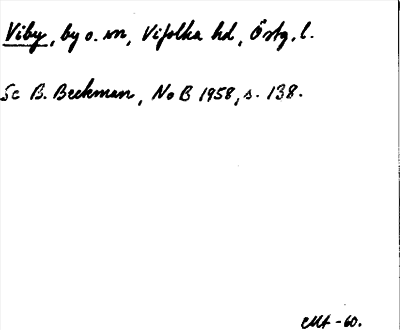 Viby, by o. sn, Vifolka hd, Östg. l.
Se B. Beckman, NoB 1958, s. 138.
-60.